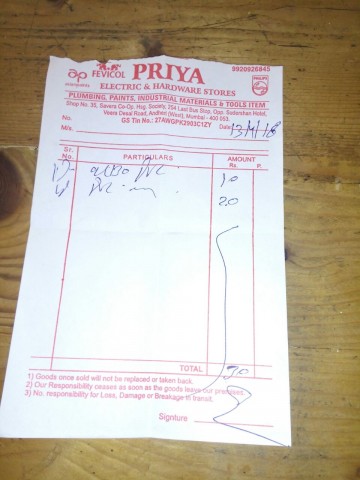 ap
asianpaints
FEVICOL
PRIYA
9920926845
PHILIPS
ELECTRIC & HARDWARE STORES
PLUMBING, PAINTS, INDUSTRIAL MATERIALS & TOOLS ITEM
Shop No. 35, Savera Co-Op. Hsg. Society, 254 Last Bus Stop, Opp. Sudarshan Hotel,
Veera Desai Road, Andheri (West), Mumbai - 400 053.
GS Tin No.: 27AWGPK2903C1ZY
No.
Date
M/s.
Sr. No.
PARTICULARS
AMOUNT
Rs. P.
10
20
TOTAL
30
1) Goods once sold will not be replaced or taken back.
2) Our Responsibility ceases as soon as the goods leave our premises.
3) No. responsibility for Loss, Damage or Breakage in transit.
Signture